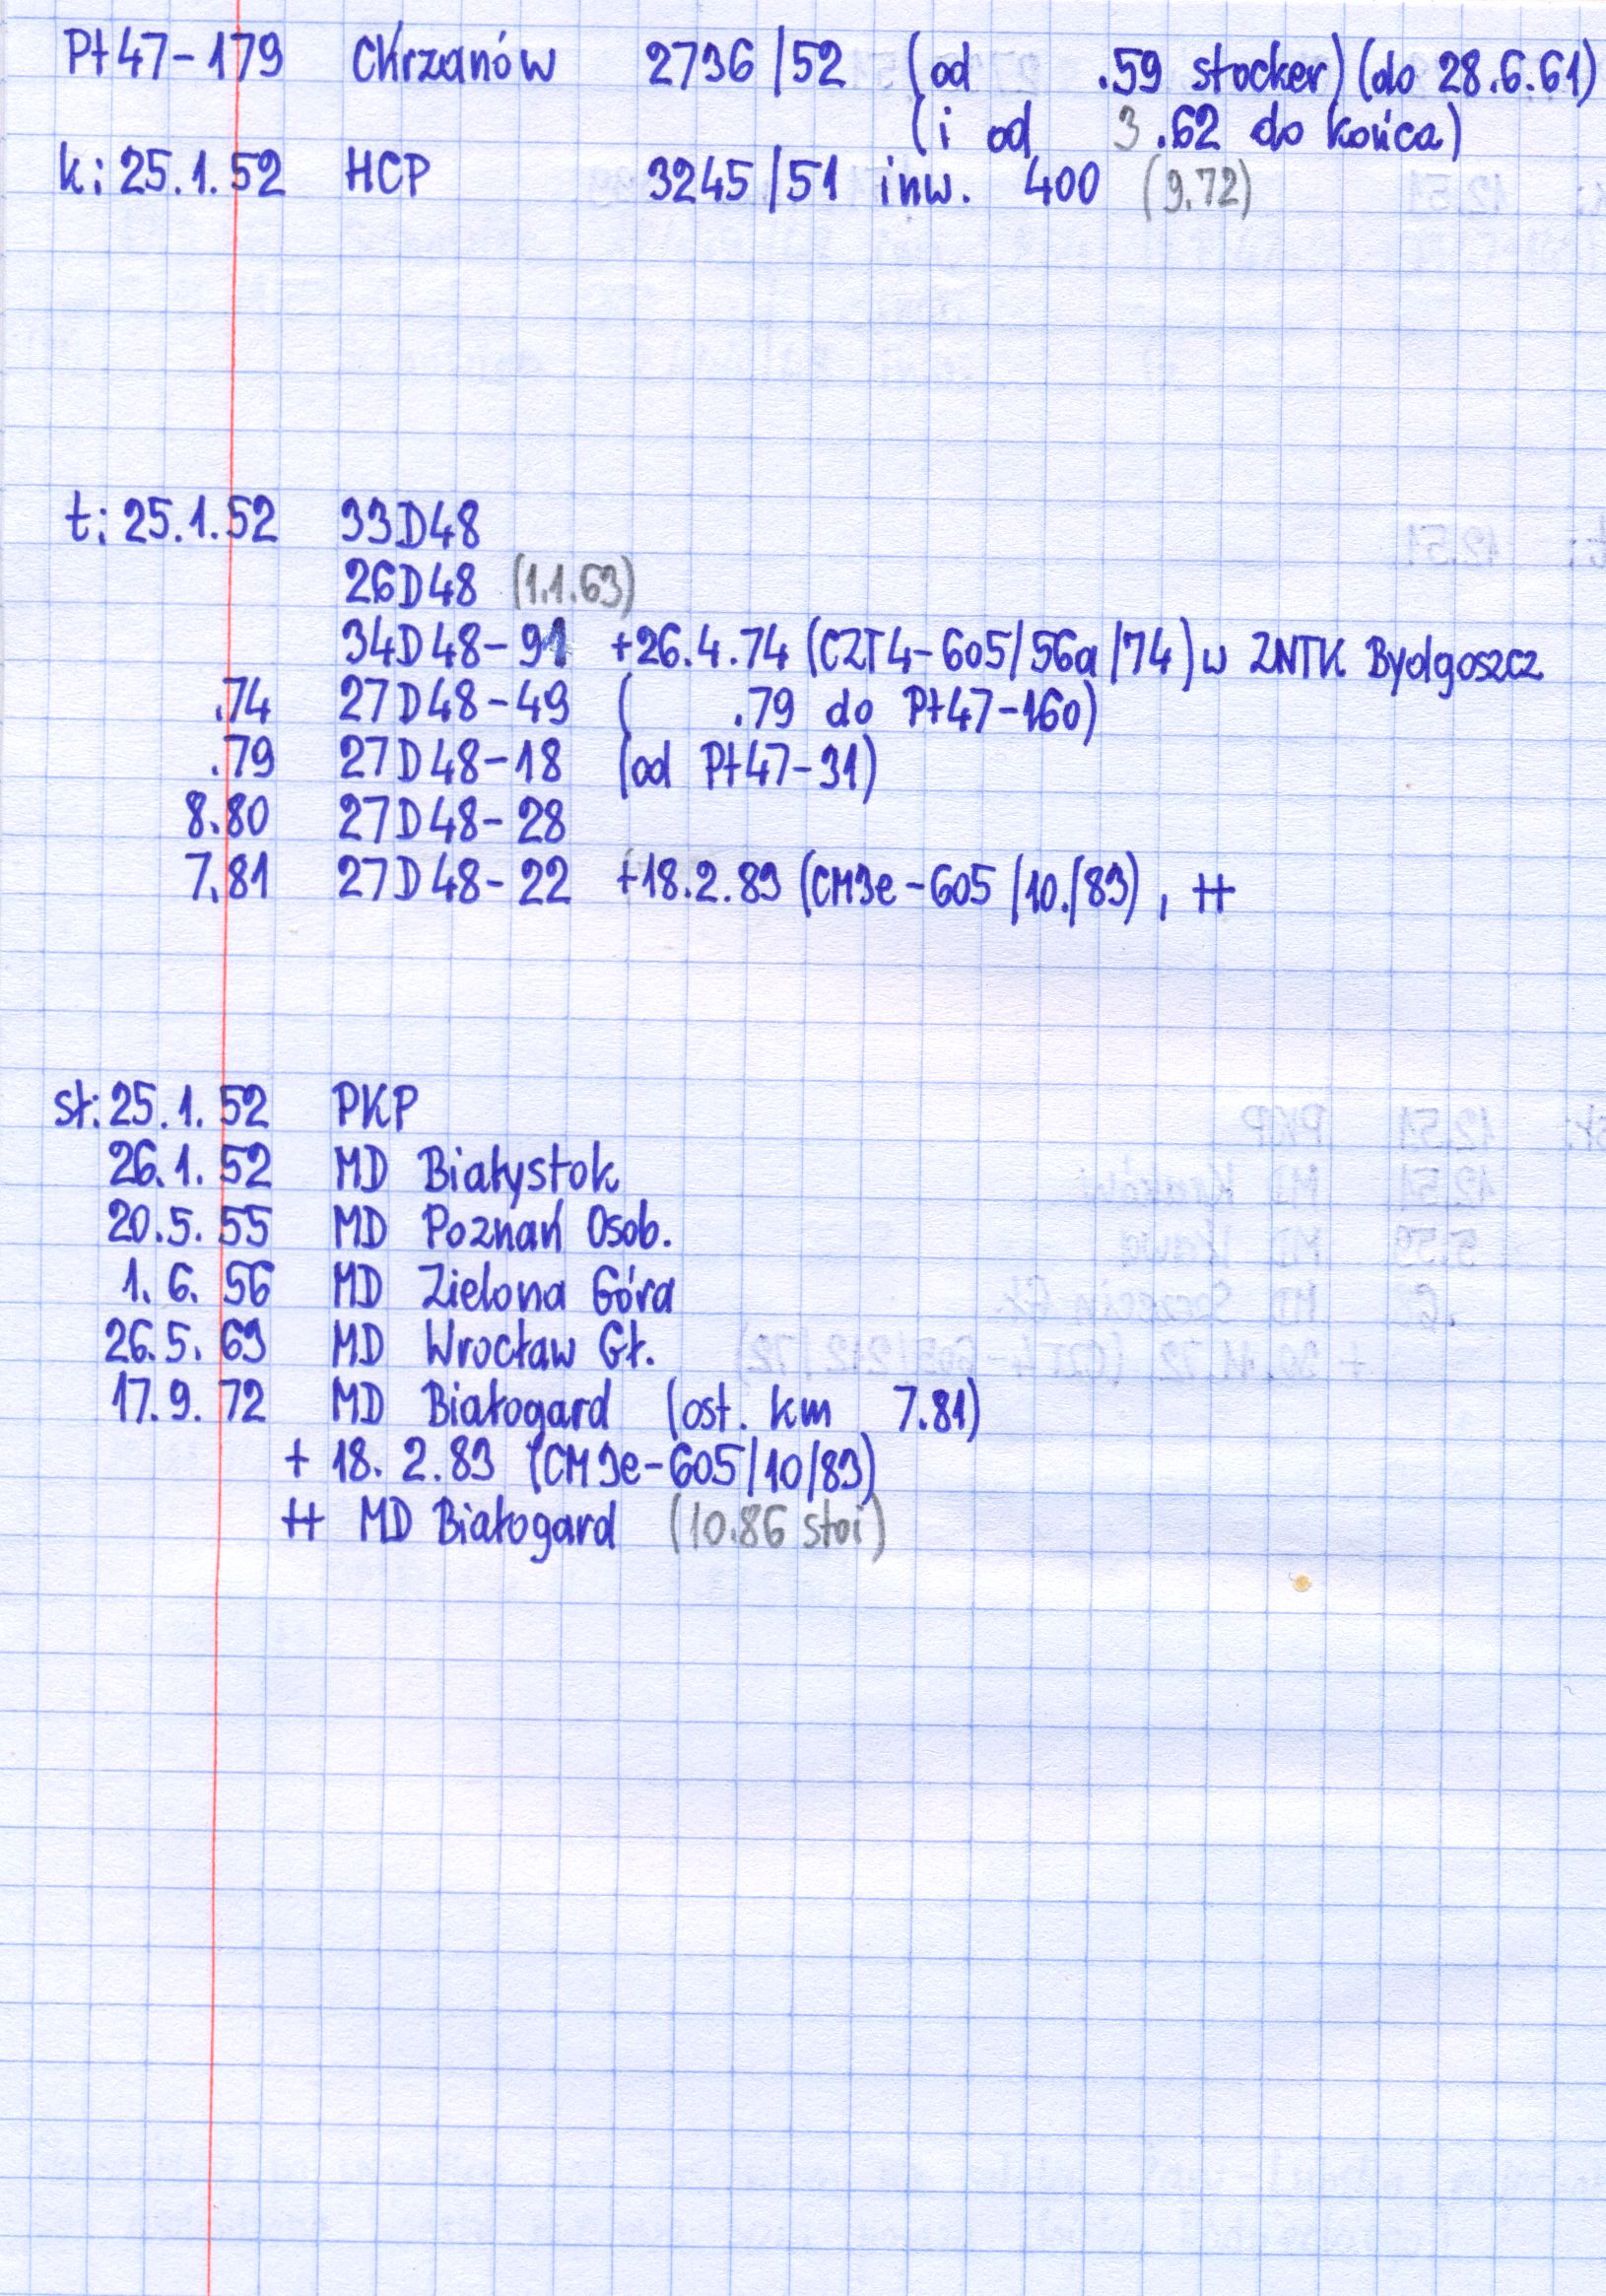 Pt47-179 Chrzanów 2736/52 (od .59 stocker) (do 28.6.61)
(i od 3.62 do końca)
k: 25.1.52 HCP 3245/51 inw. 400 (9.72)
t: 25.1.52 33D48
26D48 (1.1.63)
34D48-91 +26.4.74 (CZT4-605/56a/74) w ZNTK Bydgoszcz
.74 27D48-49 ( .79 do Pt47-160)
.79 27D48-18 (od Pt47-31)
8.80 27D48-28
7.81 27D48-22 +18.2.83 (CM3e-605/10./83), ++
st: 25.1.52 PKP
26.1.52 MD Białystok
20.5.55 MD Poznań Osob.
1.6.56 MD Zielona Góra
26.5.63 MD Wrocław Gł.
17.9.72 MD Białogard (ost. km 7.81)
+ 18.2.83 (CM3e-605/10/83)
++ MD Białogard (10.86 stoi)